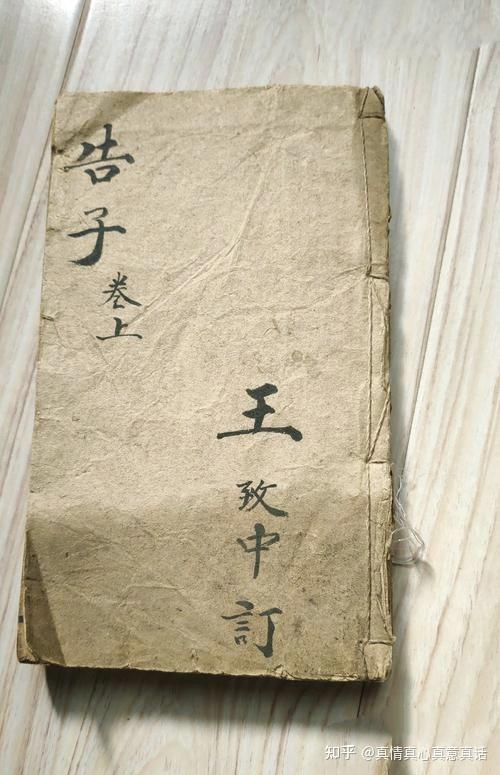 告子
卷上
王致中訂
知乎 @真情真心真意真话